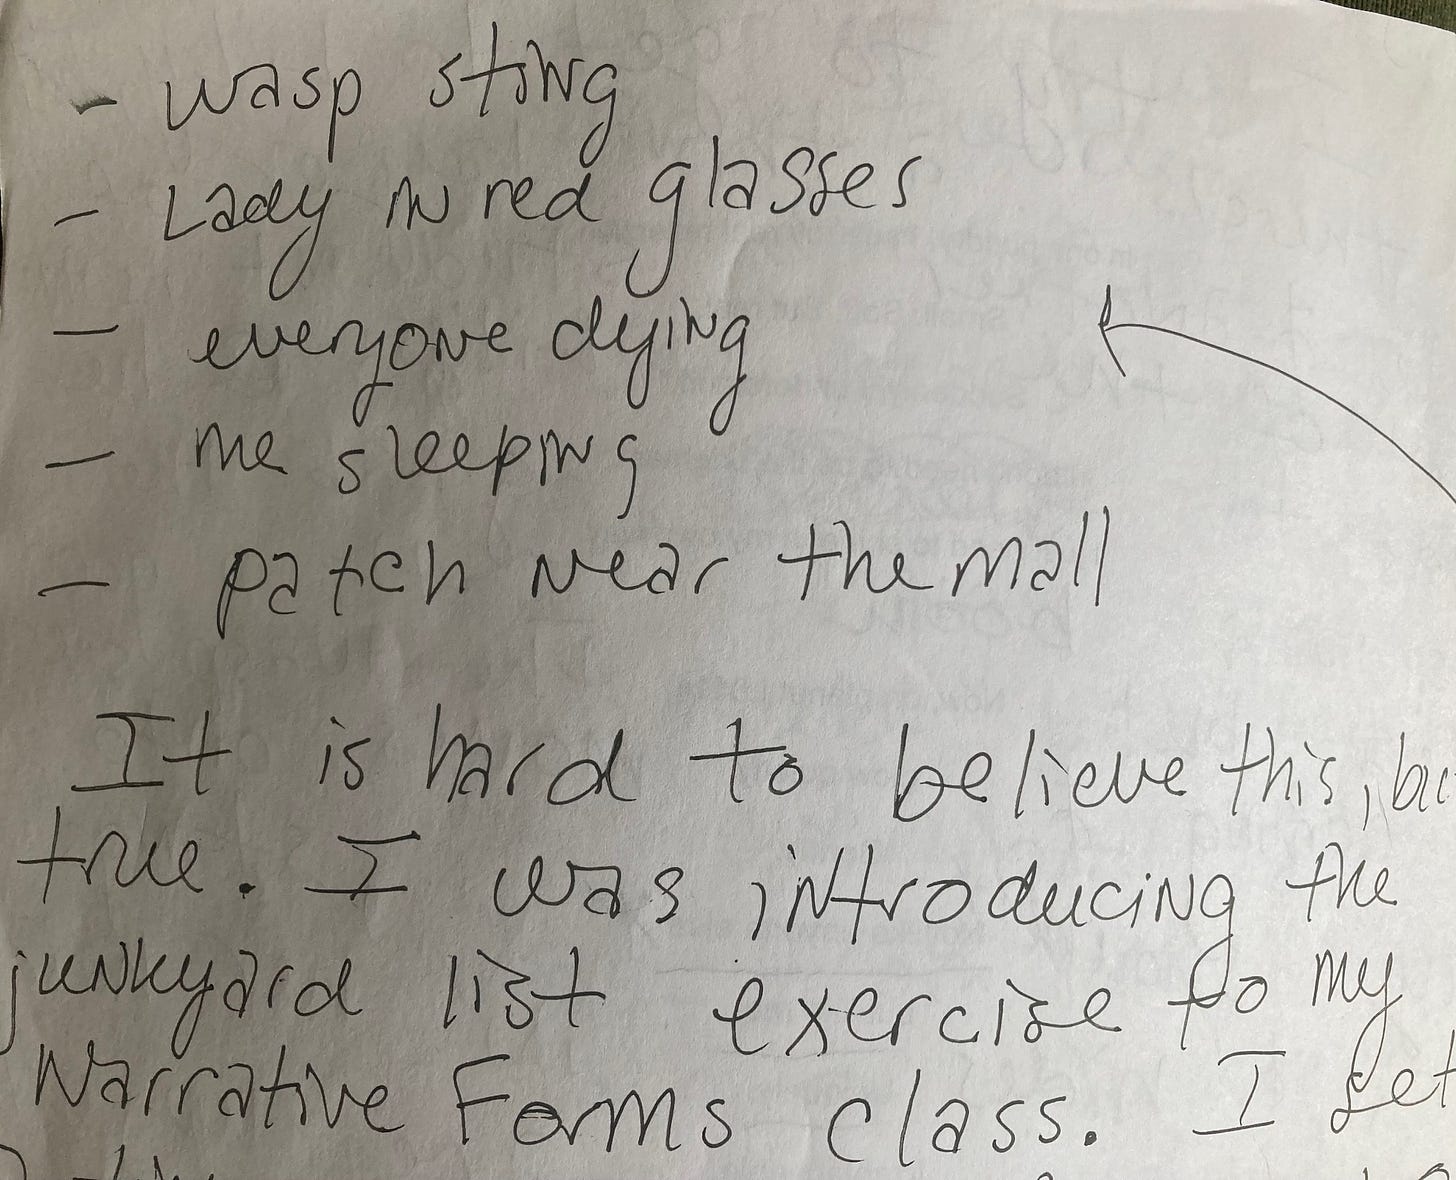 - wasp sting
- Lady in red glasses
- everyone dying
- me sleeping
- patch near the mall
It is hard to believe this,
true. I was introducing the
junkyard list exercise to my
Narrative Forms class. I